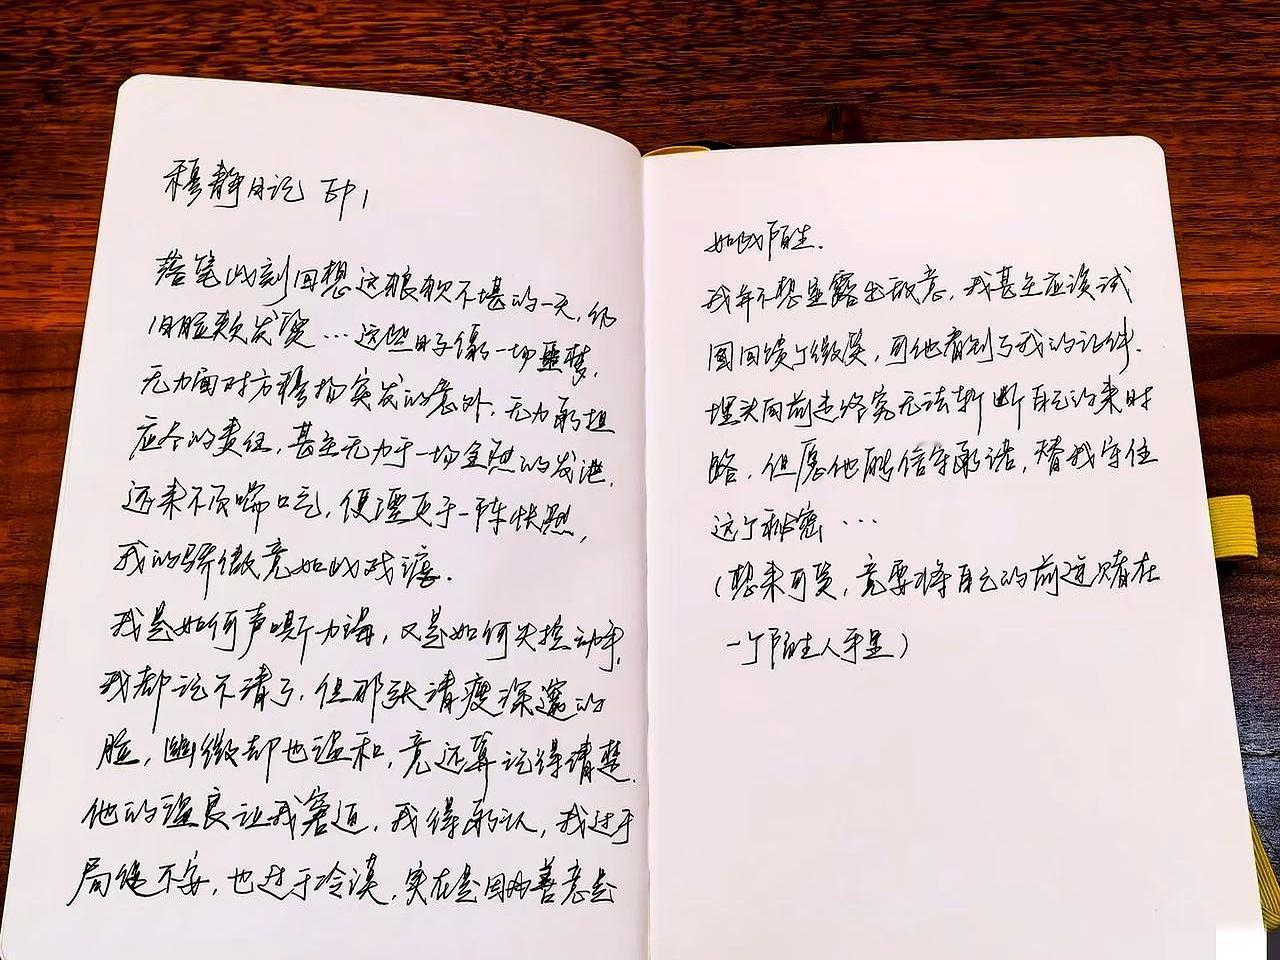 穆静日记 EP1
落笔此刻回想这狼狈不堪的一天，仍
旧脸颊发烫…这些日子像一场噩梦，
无力面对方穆扬突发的意外，无力承担
应今的责任，甚至无力于一场全然的发泄，
还来不及喘口气，便湮灭于一阵怅然，
我的骄傲竟如此残喘．
我是如何声嘶力竭，又是如何失控动手，
我都记不清了，但那张清瘦深邃的
脸，幽微却也温和，竟还算记得清楚．
他的温良让我窘迫，我得承认，我过于
局促不安，也过于冷漠，实在是因为善意是
如此陌生．
我并不想显露出敌意，我甚至应该试
图回馈个微笑，可他看到了我的证件．
埋头向前走终究无法斩断自己的来时
路，但愿他能信守承诺，替我守住
这个秘密…
（想来可笑，竟要将自己的前途赌在
一个陌生人手里）